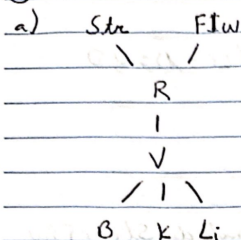 a) Str FIW
R
V
B K Li